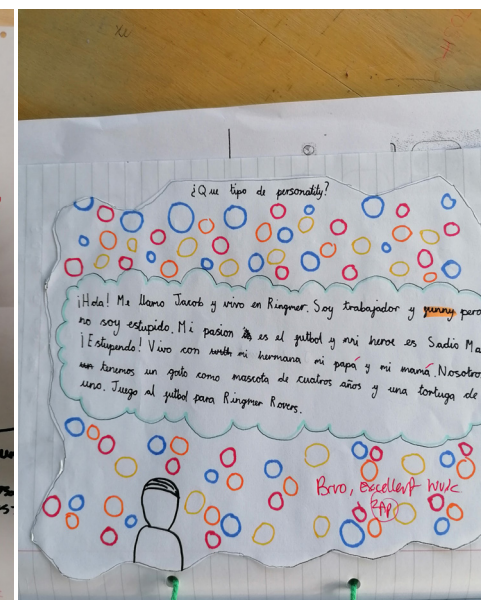 ¿Que tipo de personatity?
¡Hola! Me llamo Jacob y vivo en Ringmer. Soy trabajador y gunny pero
no soy estupido. Mi pasion es el futbol y mi heroe es Sadio Ma
¡Estupendo! Vivo con mi hermana mi papá y mi mamá. Nosotro
tenemos un gato como mascota de cuatros años y una tortuga de
uno. Juego al futbol para Ringmer Rovers.
Brvo, excellent work
2AP